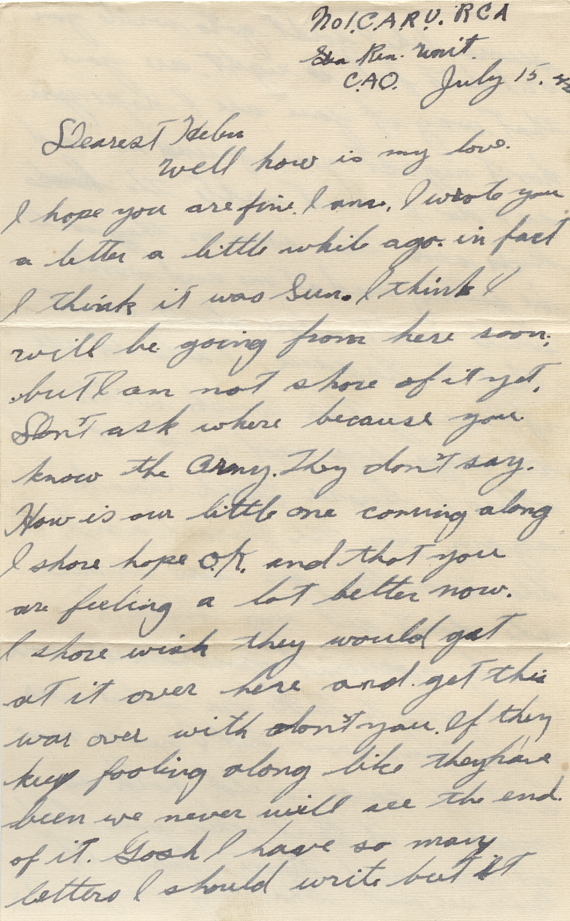 No1. C.A.R.U. RCA
Gen Ren. Unit.
C.A.O. July 15.
Dearest Helen
Well how is my love.
I hope you are fine. I am. I wrote you
a letter a little while ago. in fact
I think it was Sun. I think I
will be going from here soon,
but I am not shore of it yet.
Don't ask where because you
know the Army. They don't say.
How is our little one coming along
I shore hope O.K. and that you
are feeling a lot better now.
I shore wish they would get
at it over here and get this
war over with don't you. If they
keep fooling along like they have
been we never will see the end.
of it. Gosh I have so many
letters I should write but it